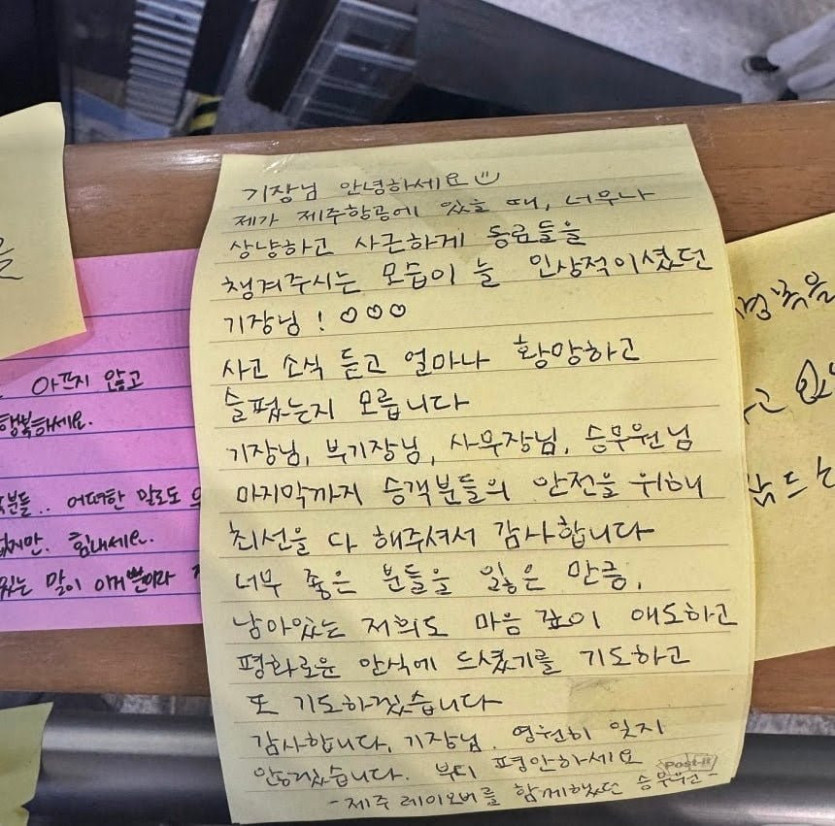 기장님 안녕하세요
제가 제주항공에 있을 때, 너무나
상냥하고 사근하게 동료들을
챙겨주시는 모습이 늘 인상적이셨던
기장님! ♡♡♡
사고 소식 듣고 얼마나 황망하고
슬펐는지 모릅니다
기장님, 부기장님, 사무장님, 승무원님
마지막까지 승객분들의 안전을 위해
최선을 다 해주셔서 감사합니다
너무 좋은 분들을 잃은 만큼,
남아있는 저희도 마음 깊이 애도하고
평화로운 안식에 드셨기를 기도하고
또 기도하겠습니다
감사합니다, 기장님. 영원히 잊지
않겠습니다. 부디 평안하세요
- 제주 레이오버를 함께했던 승무원 -
Post-it
을
아프지 않고
행복하세요.
분들.. 어떠한 말로도
없지만. 힘내세요.
있는 말이 이거 뿐이라
명복을
고